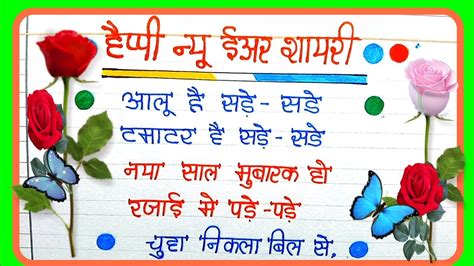 हैप्पी न्यू ईअर शायरी
आलू है सड़े-सडे
टमाटर है सड़े-सडे
नया साल मुबारक हो
रजाई मे पड़े-पड़े
चुहा निकला बिल से,